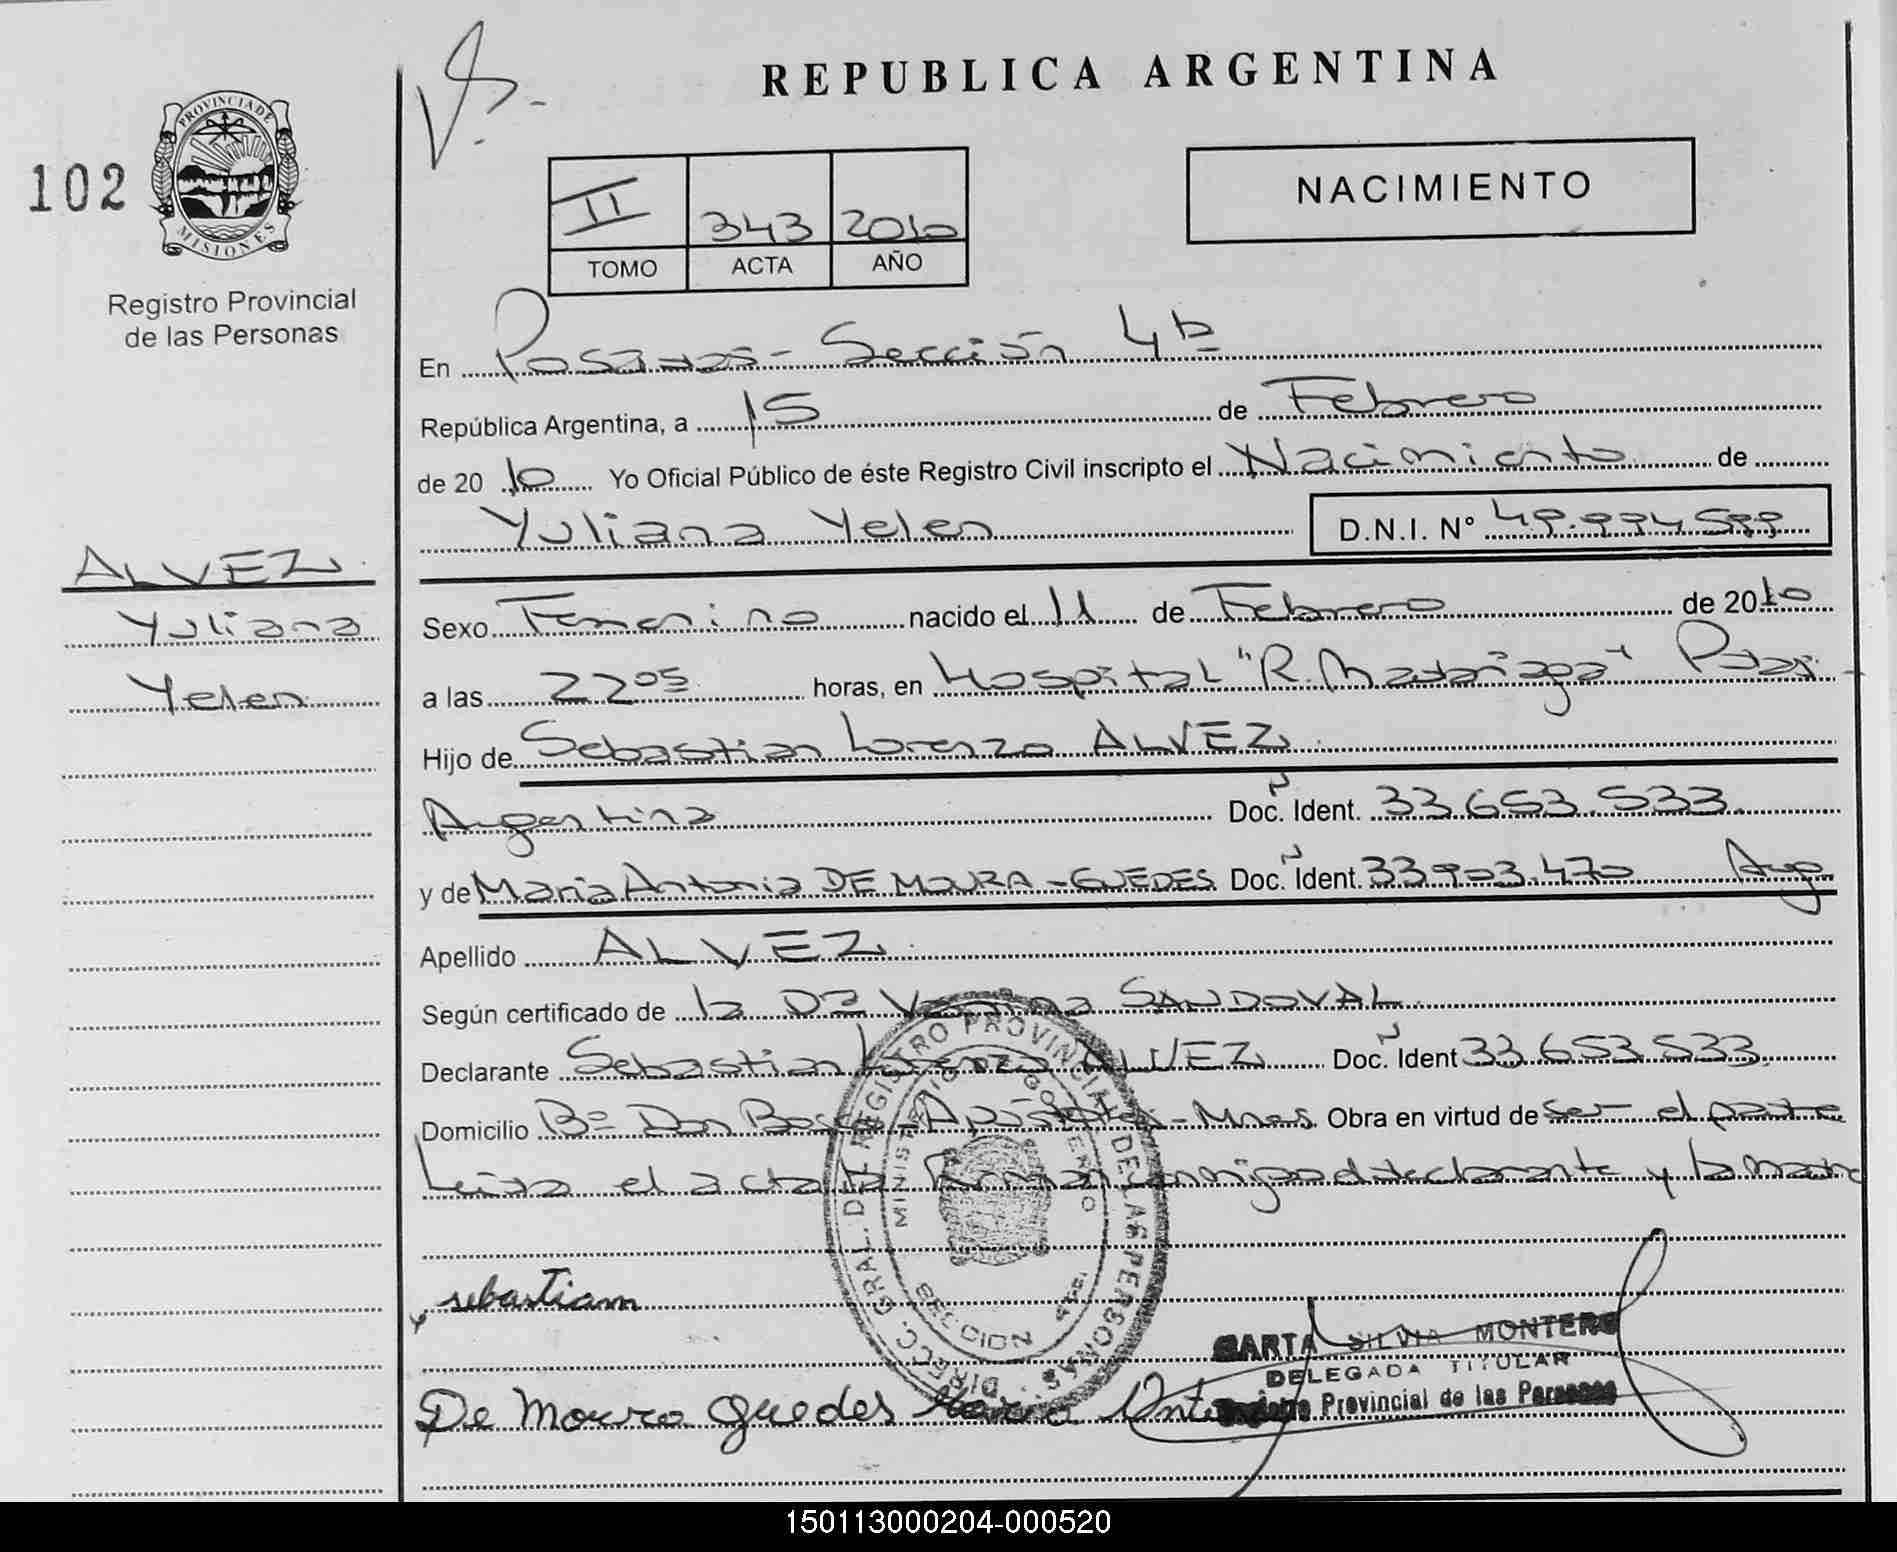 REPUBLICA ARGENTINA
102
PROVINCIA DE
MISIONES
Registro Provincial
de las Personas
II 343 2010
TOMO ACTA AÑO
NACIMIENTO
En Posadas - Sección 4ta
República Argentina, a 15 de Febrero
de 2010 Yo Oficial Público de éste Registro Civil inscripto el Nacimiento de
Yuliana Yelen D.N.I. N°
ALVEZ
Yuliana
Yelen
Sexo Femenino nacido el 11 de Febrero de 2010
a las 22 05 horas, en Hospital "R. Madariaga"
Hijo de Sebastian Lorenzo ALVEZ
Argentina Doc. Ident. 33.653.533
y de Maria Antonia DE MOURA - GUEDES Doc. Ident. 33.903.470 Arg
Apellido ALVEZ
Según certificado de la SANDOVAL
Declarante Sebastian Lorenzo ALVEZ Doc. Ident 33.653.533
Domicilio B° Don Bosco - Apóstoles - Mnes. Obra en virtud de ser el padre
Leida el acta la Firman conmigo el declarante y la madre
DIRECC. GRAL. DEL REGISTRO PROVINCIAL DE LAS PERSONAS
MINISTERIO DE GOBIERNO
SECCION 4ta.
sebastiam
SILVIA MONTERO
DELEGADA TITULAR
Provincial de las Personas
De Moura guedes Maria
150113000204-000520